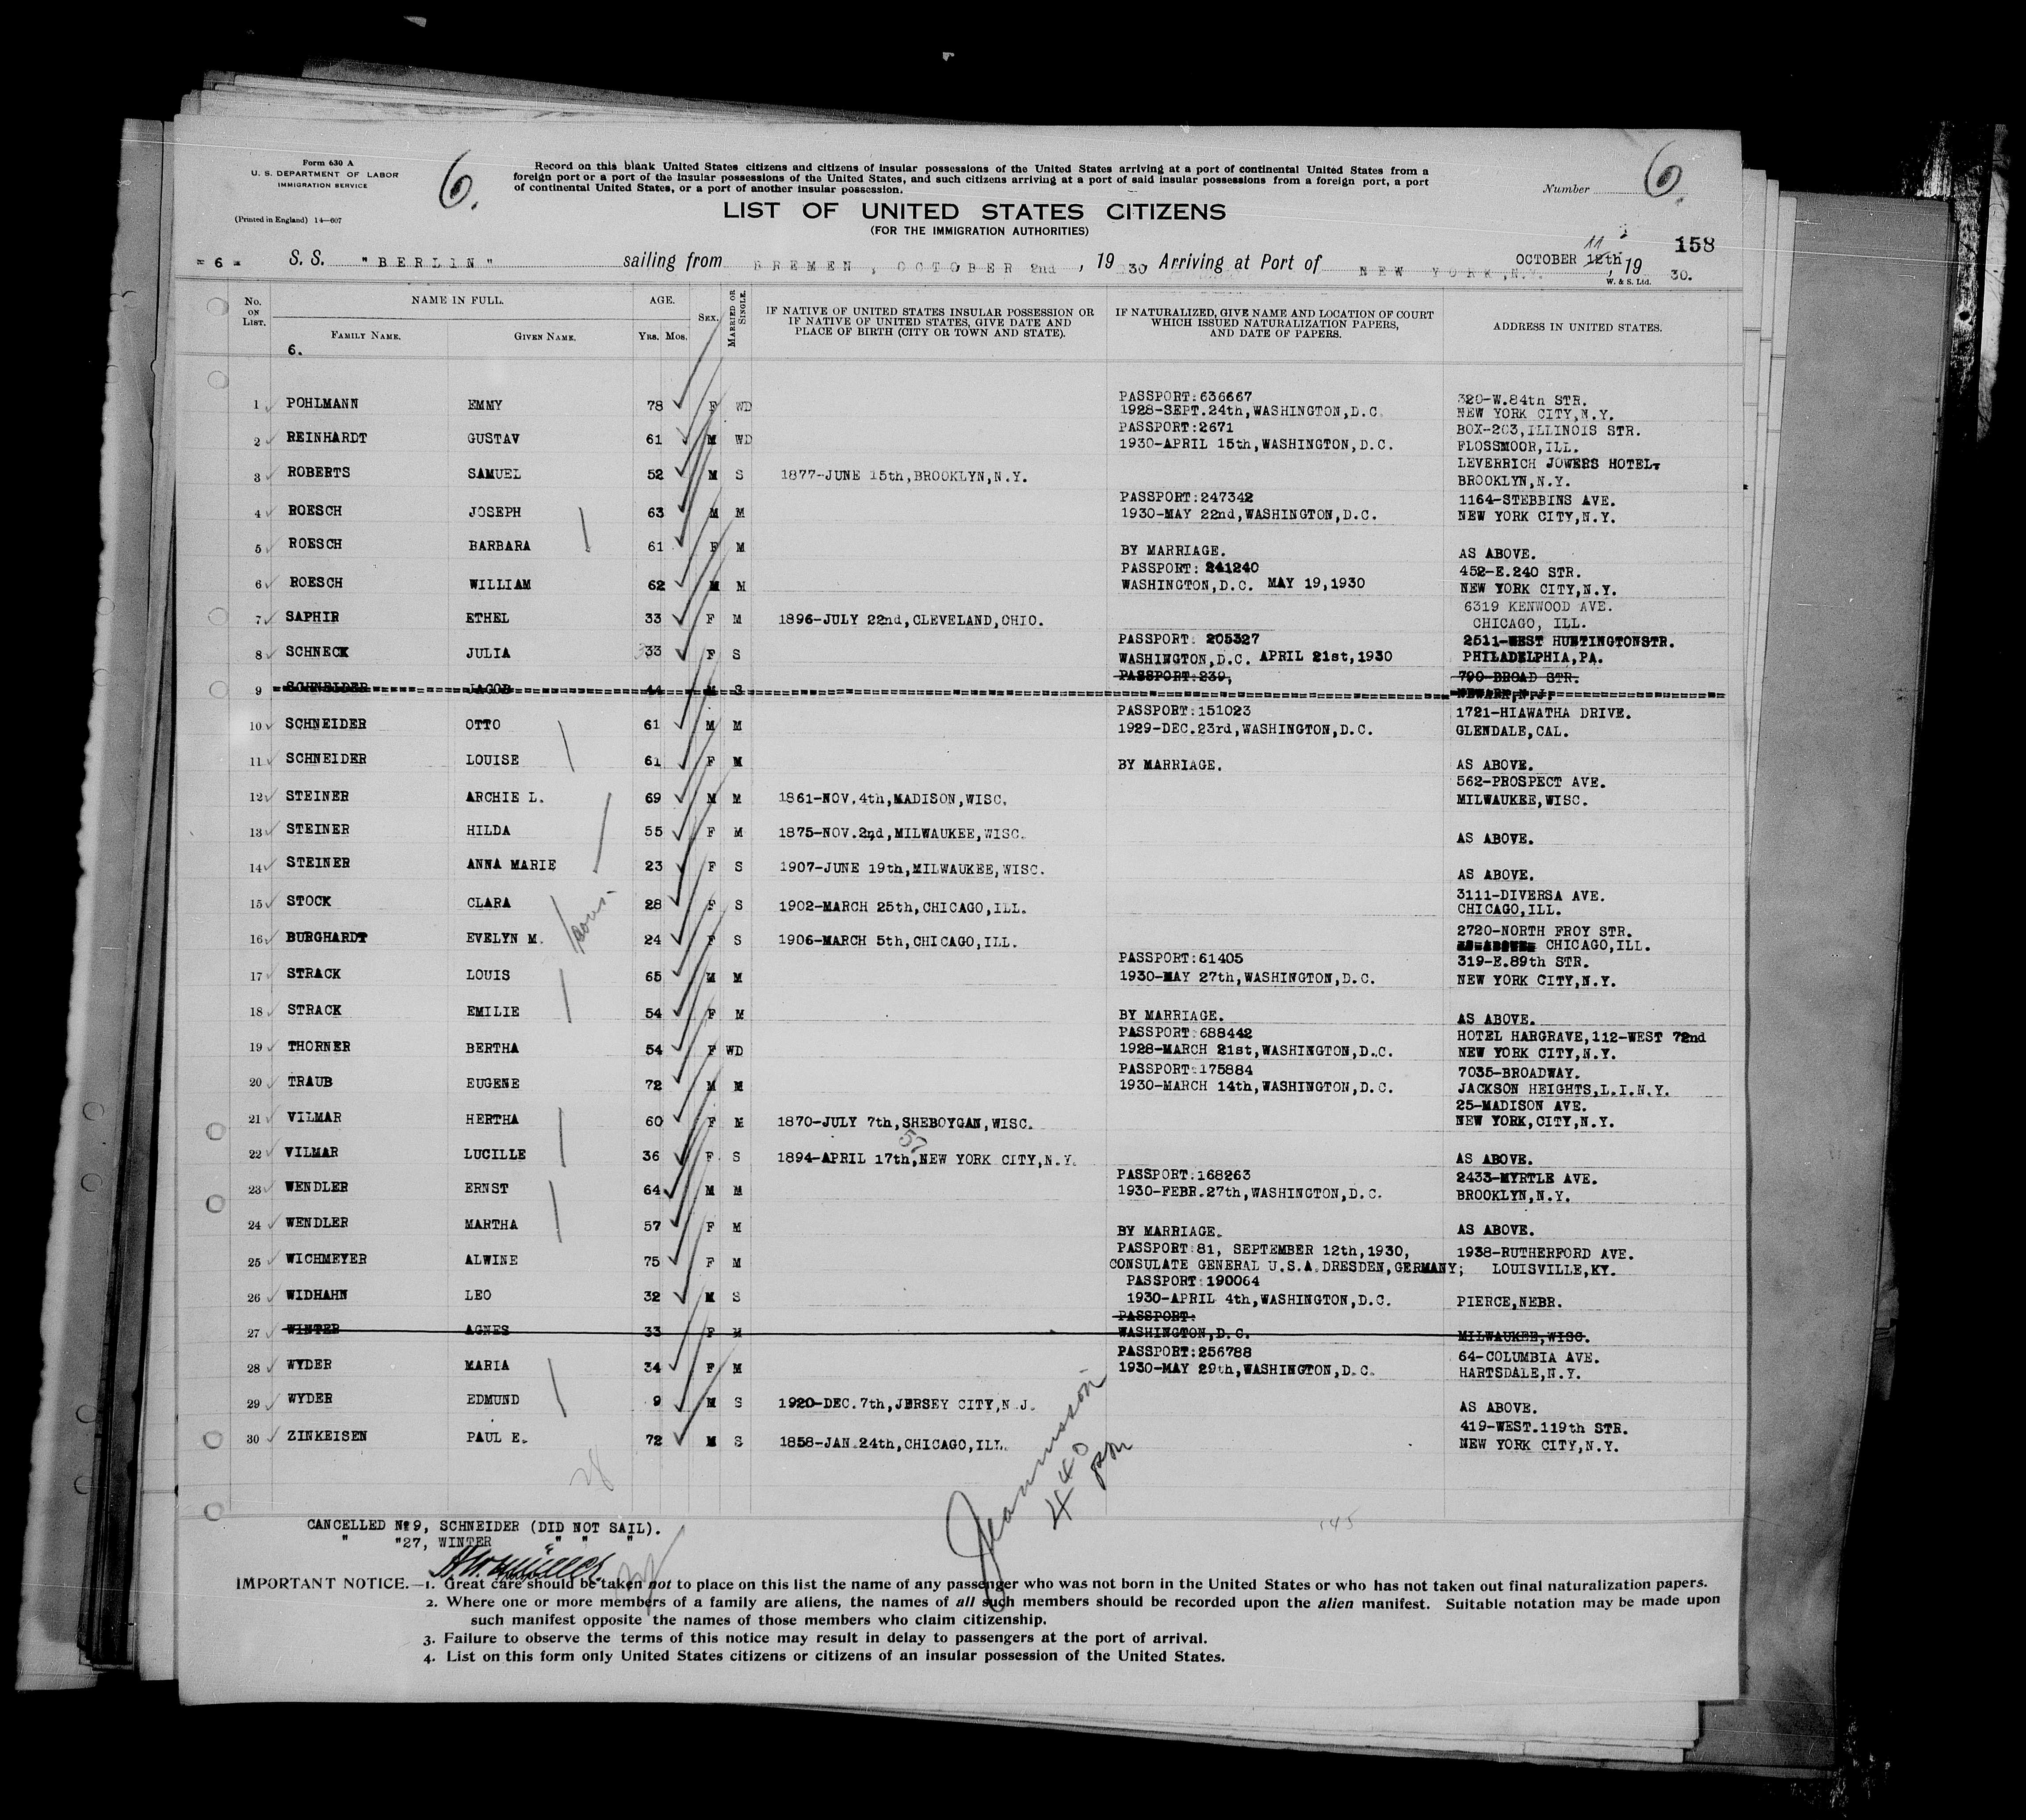 Form 630 A
U. S. DEPARTMENT OF LABOR
IMMIGRATION SERVICE
(Printed in England) 14—607
6.
Record on this blank United States citizens and citizens of insular possessions of the United States arriving at a port of continental United States from a
foreign port or a port of the insular possessions of the United States, and such citizens arriving at a port of said insular possessions from a foreign port, a port
of continental United States, or a port of another insular possession.
Number
6.
LIST OF UNITED STATES CITIZENS
(FOR THE IMMIGRATION AUTHORITIES)
158
= 6 = S. S. "BERLIN" sailing from BREMEN, OCTOBER 2nd, 1930 Arriving at Port of NEW YORK, N.Y. OCTOBER 12th 11, 1930.
W. & S. Ltd.
No. ON LIST. NAME IN FULL. AGE. SEX. MARRIED OR SINGLE. IF NATIVE OF UNITED STATES INSULAR POSSESSION OR IF NATIVE OF UNITED STATES, GIVE DATE AND PLACE OF BIRTH (CITY OR TOWN AND STATE). IF NATURALIZED, GIVE NAME AND LOCATION OF COURT WHICH ISSUED NATURALIZATION PAPERS, AND DATE OF PAPERS. ADDRESS IN UNITED STATES.
FAMILY NAME. GIVEN NAME. Yrs. Mos.
6.
1 POHLMANN EMMY 78 F WD PASSPORT:636667 1928-SEPT.24th,WASHINGTON,D.C. 320-W.84th STR. NEW YORK CITY,N.Y.
2 REINHARDT GUSTAV 61 M WD PASSPORT:2671 1930-APRIL 15th,WASHINGTON,D.C. BOX-203,ILLINOIS STR. FLOSSMOOR,ILL.
3 ROBERTS SAMUEL 52 M S 1877-JUNE 15th,BROOKLYN,N.Y. LEVERRICH JOWERS HOTEL, BROOKLYN,N.Y.
4 ROESCH JOSEPH 63 M M PASSPORT:247342 1930-MAY 22nd,WASHINGTON,D.C. 1164-STEBBINS AVE. NEW YORK CITY,N.Y.
5 ROESCH BARBARA 61 F M BY MARRIAGE. AS ABOVE.
6 ROESCH WILLIAM 62 M M PASSPORT: 241240 WASHINGTON,D.C. MAY 19,1930 452-E.240 STR. NEW YORK CITY,N.Y.
7 SAPHIR ETHEL 33 F M 1896-JULY 22nd,CLEVELAND,OHIO. 6319 KENWOOD AVE. CHICAGO, ILL.
8 SCHNECK JULIA 33 F S PASSPORT: 205327 WASHINGTON,D.C. APRIL 21st,1930 2511-WEST HUNTINGTONSTR. PHILADELPHIA,PA.
9 SCHNEIDER JACOB 44 M S PASSPORT:239, 790-BROAD STR. NEWARK,N.J.
10 SCHNEIDER OTTO 61 M M PASSPORT:151023 1929-DEC.23rd,WASHINGTON,D.C. 1721-HIAWATHA DRIVE. GLENDALE,CAL.
11 SCHNEIDER LOUISE 61 F M BY MARRIAGE. AS ABOVE.
12 STEINER ARCHIE L. 69 M M 1861-NOV.4th,MADISON,WISC. 562-PROSPECT AVE. MILWAUKEE,WISC.
13 STEINER HILDA 55 F M 1875-NOV.2nd,MILWAUKEE,WISC. AS ABOVE.
14 STEINER ANNA MARIE 23 F S 1907-JUNE 19th,MILWAUKEE,WISC. AS ABOVE.
15 STOCK CLARA 28 F S 1902-MARCH 25th,CHICAGO,ILL. 3111-DIVERSA AVE. CHICAGO,ILL.
16 BURGHARDT EVELYN M. 24 F S 1906-MARCH 5th,CHICAGO,ILL. 2720-NORTH FROY STR. AS ABOVE CHICAGO,ILL.
17 STRACK LOUIS 65 M M PASSPORT:61405 1930-MAY 27th,WASHINGTON,D.C. 319-E.89th STR. NEW YORK CITY,N.Y.
18 STRACK EMILIE 54 F M BY MARRIAGE. AS ABOVE.
19 THORNER BERTHA 54 F WD PASSPORT:688442 1928-MARCH 21st,WASHINGTON,D.C. HOTEL HARGRAVE,112-WEST 72nd NEW YORK CITY,N.Y.
20 TRAUB EUGENE 72 M M PASSPORT:175884 1930-MARCH 14th,WASHINGTON,D.C. 7035-BROADWAY. JACKSON HEIGHTS,L.I.N.Y.
21 VILMAR HERTHA 60 F M 1870-JULY 7th,SHEBOYGAN,WISC. 25-MADISON AVE. NEW YORK,CITY,N.Y.
57
22 VILMAR LUCILLE 36 F S 1894-APRIL 17th,NEW YORK CITY,N.Y. AS ABOVE.
23 WENDLER ERNST 64 M M PASSPORT:168263 1930-FEBR.27th,WASHINGTON,D.C. 2433-MYRTLE AVE. BROOKLYN,N.Y.
24 WENDLER MARTHA 57 F M BY MARRIAGE. AS ABOVE.
25 WICHMEYER ALWINE 75 F M PASSPORT:81, SEPTEMBER 12th,1930, CONSULATE GENERAL U.S.A.DRESDEN,GERMANY; 1938-RUTHERFORD AVE. LOUISVILLE,KY.
26 WIDHAHN LEO 32 M S PASSPORT:190064 1930-APRIL 4th,WASHINGTON,D.C. PIERCE,NEBR.
27 WINTER AGNES 33 F M PASSPORT: WASHINGTON,D.C. MILWAUKEE,WISC.
28 WYDER MARIA 34 F M PASSPORT:256788 1930-MAY 29th,WASHINGTON,D.C. 64-COLUMBIA AVE. HARTSDALE,N.Y.
29 WYDER EDMUND 9 M S 1920-DEC.7th,JERSEY CITY,N.J. AS ABOVE.
30 ZINKEISEN PAUL E. 72 M S 1858-JAN.24th,CHICAGO,ILL. 419-WEST.119th STR. NEW YORK CITY,N.Y.
28
440
pm
145
CANCELLED No 9, SCHNEIDER (DID NOT SAIL).
" "27, WINTER " " "
IMPORTANT NOTICE.—1. Great care should be taken not to place on this list the name of any passenger who was not born in the United States or who has not taken out final naturalization papers.
2. Where one or more members of a family are aliens, the names of all such members should be recorded upon the alien manifest. Suitable notation may be made upon
such manifest opposite the names of those members who claim citizenship.
3. Failure to observe the terms of this notice may result in delay to passengers at the port of arrival.
4. List on this form only United States citizens or citizens of an insular possession of the United States.